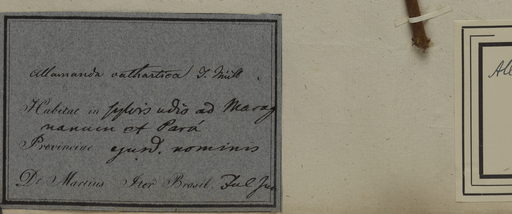 Allamanda cathartica T. Mill.
Habitat in sylvis udis ad Marag
nanum et Pará
Provinciae ejusd. nominis
De Martius Iter Brasil. Jul Jun
All